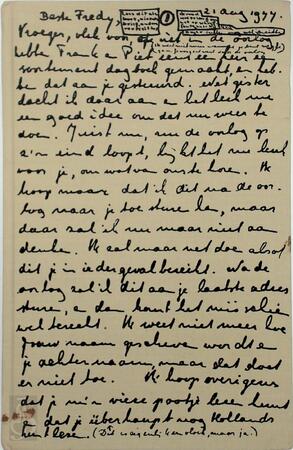 Beste Fredy, 21 aug 1944.
Vroeger, vlak voor of net in de oorlog
hebben Frank en Piet eens een heel
soortement dagboek gemaakt, en heb-
ben dat aan je gestuurd. Wat gister
dacht ik daar aan en het leek me
een goed idee om dat nu weer te
doen. Juist nu, nu de oorlog op
z'n eind loopt, lijkt het me leuk
voor je, om wat van ons te horen. Ik
hoop maar dat ik dit na de oor-
log naar je toe sturen kan, maar
daar zal ik nu maar niet aan
denken. Ik zal maar net doen alsof
dit je in ieder geval bereikt. Na de
oorlog zal ik dit aan je laatste adres
sturen, en dan komt het misschien
wel terecht. Ik weet niet meer hoe
jouw naam geschreven wordt en
je achternaam, maar dat doet
er niet toe. Ik hoop overigens
dat je m'n vieze pootje lezen kunt
en dat je überhaupt nog Hollands
kunt lezen. (Dit is eigenlijk een vloek, maar ja.)